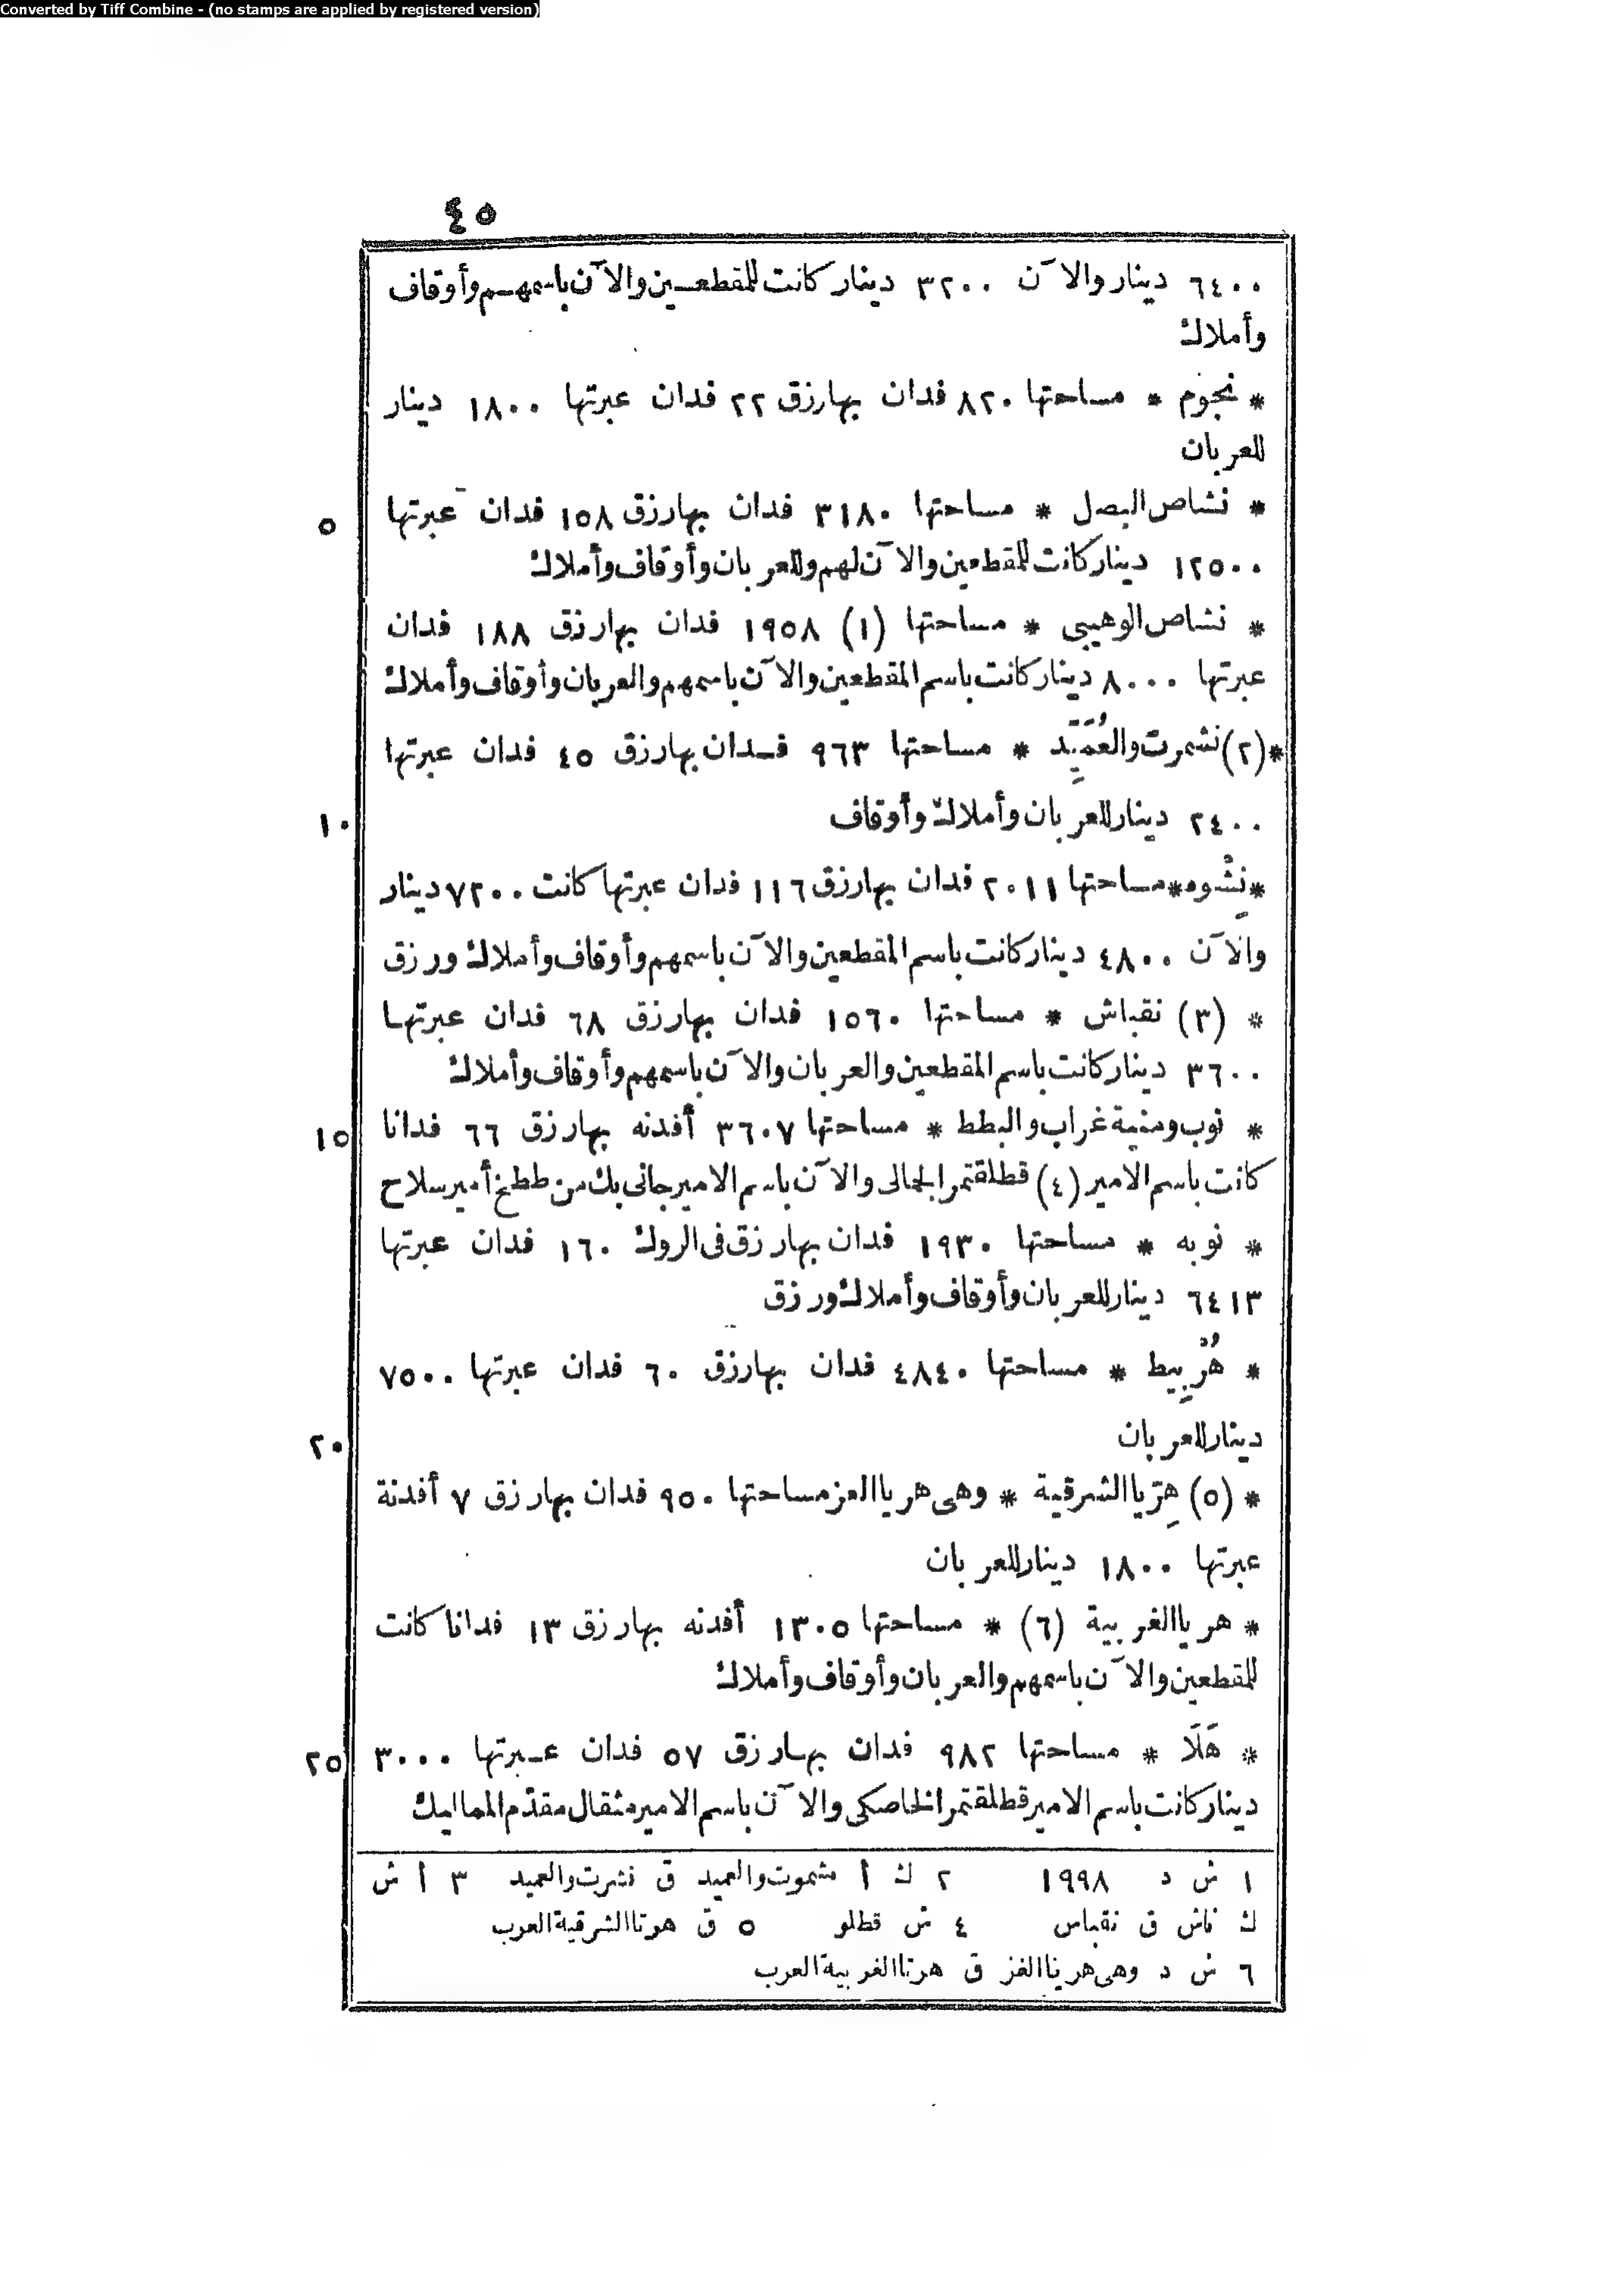 Converted by Tiff Combine - (no stamps are applied by registered version)
٤٥
٦٤٠٠ دينار والآن ٣٢٠٠ دينار كانت للمقطعين والآن باسمهم وأوقاف
وأملاك
* نجوم * مساحتها ٨٢٠ فدان بها رزق ٢٢ فدان عبرتها ١٨٠٠ دينار
للعربان
* نشاص البصل * مساحتها ٣١٨٠ فدان بها رزق ١٥٨ فدان عبرتها
٥
١٢٥٠٠ دينار كانت للمقطعين والآن لهم وللعربان وأوقاف وأملاك
* نشاص الوهيبى * مساحتها (١) ١٩٥٨ فدان بها رزق ١٨٨ فدان
عبرتها ٨٠٠٠ دينار كانت باسم المقطعين والآن باسمهم والعربان وأوقاف وأملاك
* (٢) نشمرت والعُمَيِّد * مساحتها ٩٦٣ فدان بها رزق ٤٥ فدان عبرتها
٢٤٠٠ دينار للعربان وأملاك وأوقاف
١٠
* نِشْوه * مساحتها ٢٠١١ فدان بها رزق ١١٦ فدان عبرتها كانت ٧٢٠٠ دينار
والآن ٤٨٠٠ دينار كانت باسم المقطعين والآن باسمهم وأوقاف وأملاك ورزق
* (٣) نقباش * مساحتها ١٥٦٠ فدان بها رزق ٦٨ فدان عبرتها
٣٦٠٠ دينار كانت باسم المقطعين والعربان والآن باسمهم وأوقاف وأملاك
* نوب ومنية غراب والبطط * مساحتها ٣٦٠٧ أفدنه بها رزق ٦٦ فدانا
١٥
كانت باسم الامير (٤) قطلقتمر الجمالى والآن باسم الامير جانى بك من ططخ أمير سلاح
* نوبه * مساحتها ١٩٣٠ فدان بها رزق فى الروك ١٦٠ فدان عبرتها
٦٤١٣ دينار للعربان وأوقاف وأملاك ورزق
* هُرْبِيط * مساحتها ٤٨٤٠ فدان بها رزق ٦٠ فدان عبرتها ٧٥٠٠
دينار للعربان
٢٠
* (٥) هِرّيا الشرقية * وهى هريا العز مساحتها ٩٥٠ فدان بها رزق ٧ أفدنة
عبرتها ١٨٠٠ دينار للعربان
* هريا الغربية (٦) * مساحتها ١٣٠٥ أفدنه بها رزق ١٣ فدانا كانت
للمقطعين والآن باسمهم والعربان وأوقاف وأملاك
* هَلَا * مساحتها ٩٨٢ فدان بها رزق ٥٧ فدان عبرتها ٣٠٠٠
٢٥
دينار كانت باسم الامير قطلقتمر الخاصكى والآن باسم الامير مثقال مقدّم المماليك
١ ش د ١٩٩٨ ٢ ك أ مشموت والعميد ق نشرت والعميد ٣ أ ش
ك ناش ق نقباس ٤ ش قطلو ٥ ق هرتا الشرقية العرب
٦ ش د وهى هريا الغز ق هرتا الغربية العرب